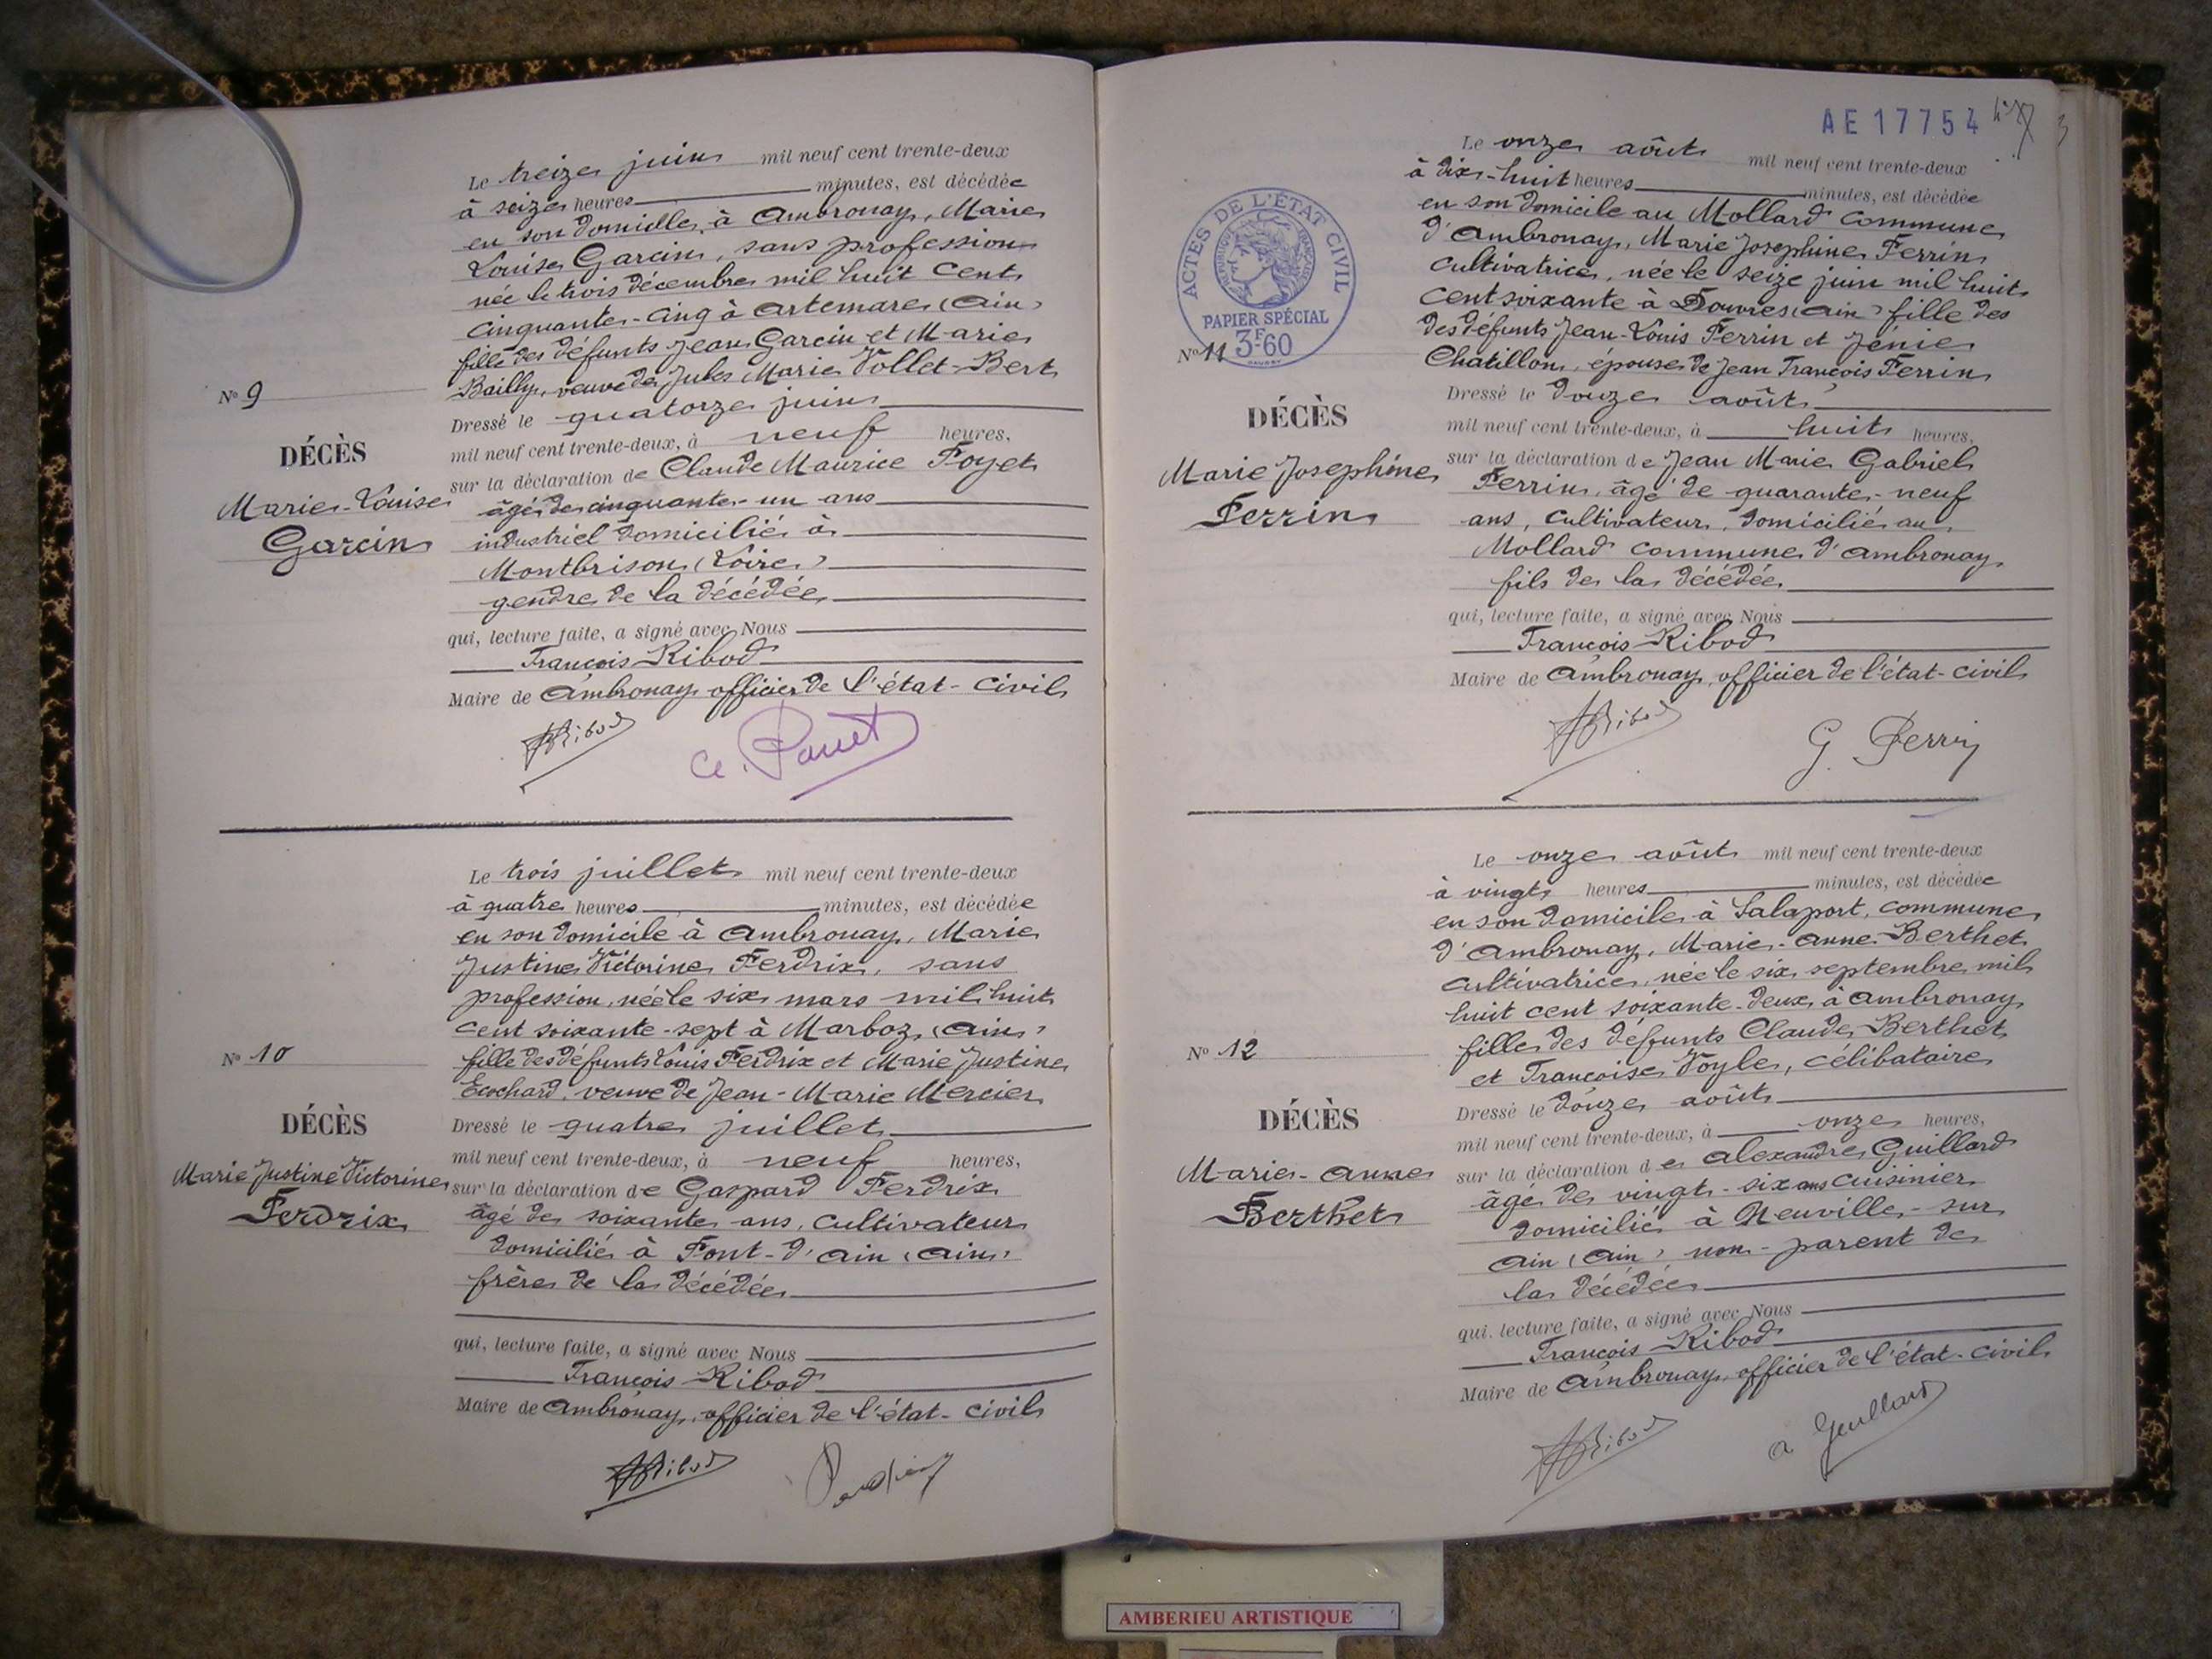 Le treize juin mil neuf cent trente-deux
à seize heures minutes, est décédée
en son domicile à Ambronay, Marie
Louise Garcin, sans profession
née le trois décembre mil huit cent
cinquante-cinq à Artemare (Ain)
fille des défunts Jean Garcin et Marie
Bailly, veuve de Jules Marie Vollet-Bert
N° 9
Dressé le quatorze juin
mil neuf cent trente-deux, à neuf heures,
DÉCÈS
sur la déclaration de Claude Maurice
Marie-Louise
âgé de cinquante-un ans
Garcin
industriel domicilié à
Montbrison (Loire)
gendre de la décédée
qui, lecture faite, a signé avec Nous
François Ribod
Maire de Ambronay, officier de l'état-civil
Ribod
Le trois juillet mil neuf cent trente-deux
à quatre heures minutes, est décédée
en son domicile à Ambronay, Marie
Justine Victorine Perdrix, sans
profession, née le six mars mil huit
cent soixante-sept à Marboz (Ain)
fille des défunts Louis Perdrix et Marie Justine
N° 10
Ecochard, veuve de Jean-Marie Mercier
DÉCÈS
Dressé le quatre juillet
mil neuf cent trente-deux, à neuf heures,
Marie Justine Victorine
sur la déclaration de Gaspard Perdrix
Perdrix
âgé de soixante ans, cultivateur
domicilié à Pont-d'Ain (Ain)
frère de la décédée
qui, lecture faite, a signé avec Nous
François Ribod
Maire de Ambronay, officier de l'état-civil
Ribod
AE17754
Le onze août mil neuf cent trente-deux
à dix-huit heures minutes, est décédée
en son domicile au Mollard commune
d'Ambronay, Marie Josephine Perrin
cultivatrice, née le seize juin mil huit
cent soixante à Douvres (Ain) fille des
des défunts Jean-Louis Perrin et Jénie
Chatillon, épouse de Jean François Perrin
ACTES DE L'ÉTAT CIVIL
RÉPUBLIQUE FRANÇAISE
PAPIER SPÉCIAL
3F60
N° 11
Dressé le douze août
mil neuf cent trente-deux, à huit heures,
DÉCÈS
sur la déclaration de Jean Marie Gabriel
Marie Josephine
Perrin, âgé de quarante-neuf
Perrin
ans, cultivateur, domicilié au
Mollard commune d'Ambronay
fils de la décédée
qui, lecture faite, a signé avec Nous
François Ribod
Maire de Ambronay, officier de l'état-civil
Ribod
G. Perrin
Le onze août mil neuf cent trente-deux
à vingt heures minutes, est décédée
en son domicile à Salaport, commune
d'Ambronay, Marie-Anne Berthet
cultivatrice, née le six septembre mil
huit cent soixante-deux à Ambronay
fille des défunts Claude Berthet
N° 12
et Françoise Voyle, célibataire
DÉCÈS
Dressé le douze août
mil neuf cent trente-deux, à onze heures,
Marie-Anne
sur la déclaration de Alexandre Guillard
Berthet
âgé de vingt-six ans cuisinier
domicilié à Neuville-sur
Ain (Ain) non-parent de
la décédée
qui, lecture faite, a signé avec Nous
François Ribod
Maire de Ambronay, officier de l'état-civil
Ribod
a Guillard
AMBERIEU ARTISTIQUE